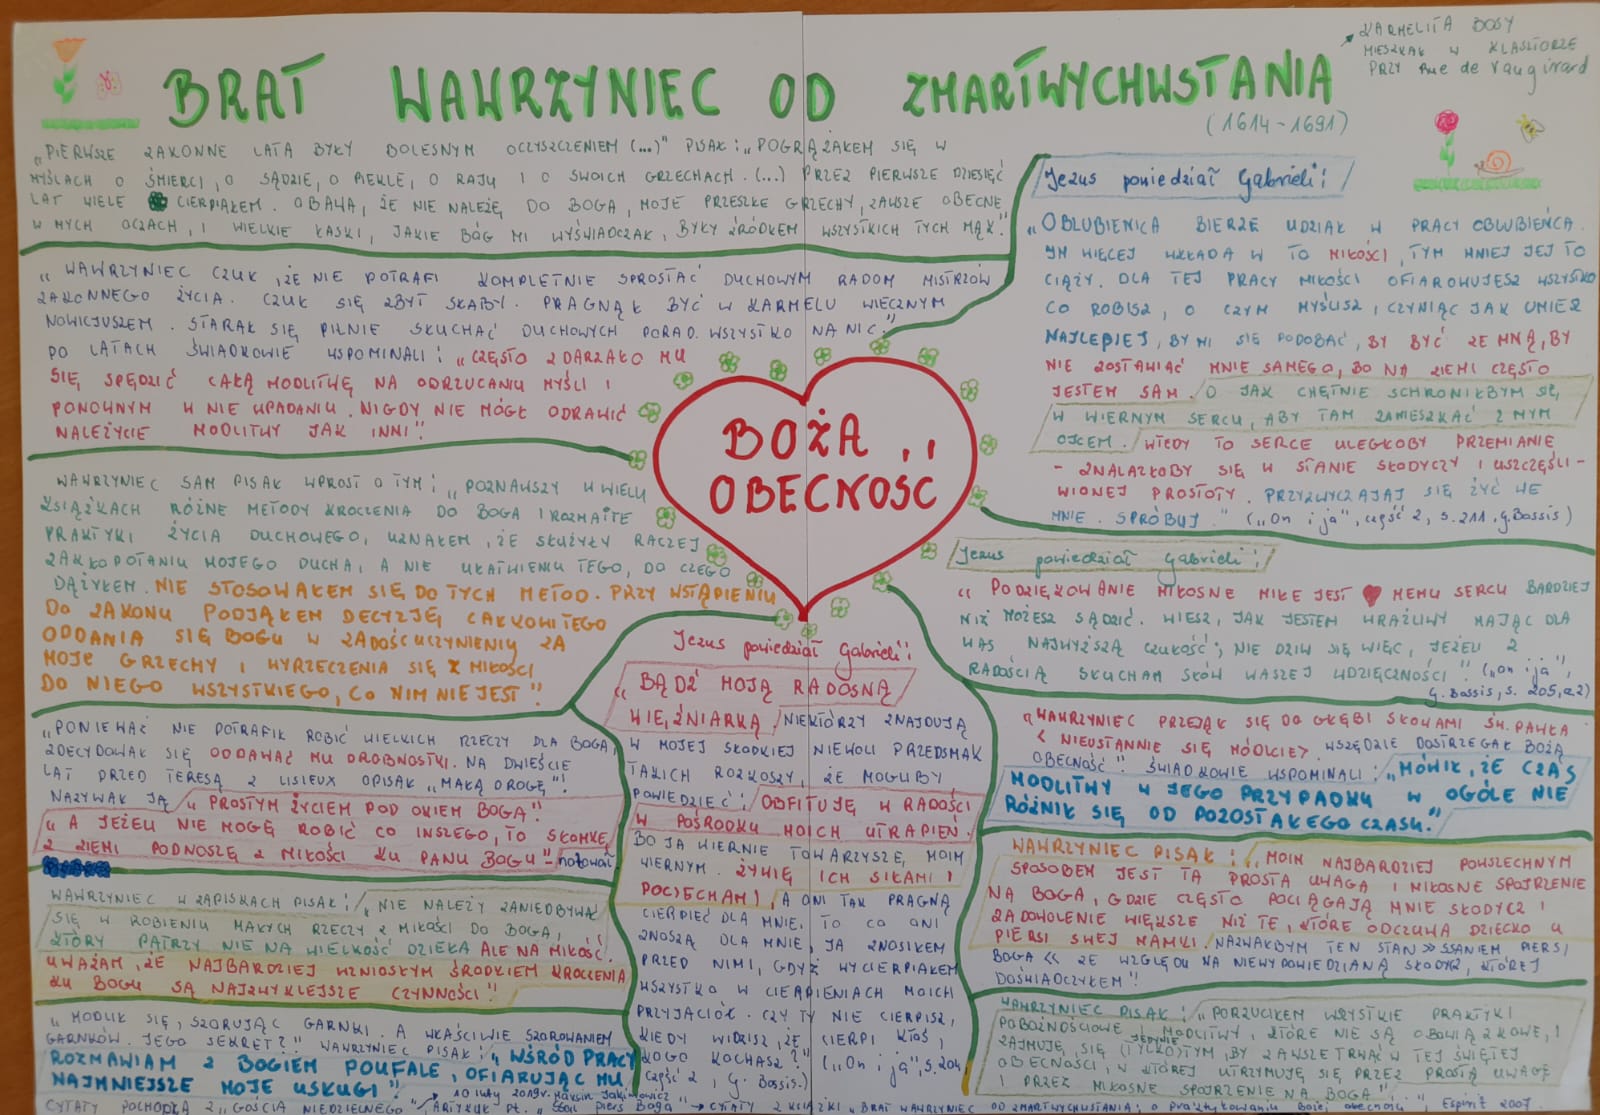 KARMELITA BOSY
MIESZKAŁ W KLASZTORZE
PRZY Rue de Vaugirard
BRAT WAWRZYNIEC OD ZMARTWYCHWSTANIA
(1614-1691)
„PIERWSZE ZAKONNE LATA BYŁY BOLESNYM OCZYSZCZENIEM (...)" PISAŁ: „POGRĄŻAŁEM SIĘ W
MYŚLACH O ŚMIERCI, O SĄDZIE, O PIEKLE, O RAJU I O SWOICH GRZECHACH. (...) PRZEZ PIERWSZE DZIESIĘĆ
LAT WIELE CIERPIAŁEM. OBAWA, ŻE NIE NALEŻĘ DO BOGA, MOJE PRZESZŁE GRZECHY, ZAWSZE OBECNE
W MYCH OCZACH, I WIELKIE ŁASKI, JAKIE BÓG MI WYŚWIADCZAŁ, BYŁY ŹRÓDŁEM WSZYSTKICH TYCH MĄK."
„WAWRZYNIEC CZUŁ, ŻE NIE POTRAFI KOMPLETNIE SPROSTAĆ DUCHOWYM RADOM MISTRZÓW
ZAKONNEGO ŻYCIA. CZUŁ SIĘ ZBYT SŁABY. PRAGNĄŁ BYĆ W KARMELU WIECZNYM
NOWICJUSZEM. STARAŁ SIĘ PILNIE SŁUCHAĆ DUCHOWYCH PORAD. WSZYSTKO NA NIC."
PO LATACH ŚWIADKOWIE WSPOMINALI: „CZĘSTO ZDARZAŁO MU
SIĘ SPĘDZIĆ CAŁĄ MODLITWĘ NA ODRZUCANIU MYŚLI I
PONOWNYM W NIE WPADANIU. NIGDY NIE MÓGŁ ODRAWIĆ
NALEŻYCIE MODLITWY JAK INNI".
WAWRZYNIEC SAM PISAŁ WPROST O TYM: „POZNAWSZY W WIELU
KSIĄŻKACH RÓŻNE METODY KROCZENIA DO BOGA I ROZMAITE
PRAKTYKI ŻYCIA DUCHOWEGO, UZNAŁEM, ŻE SŁUŻYŁY RACZEJ
ZAKŁOPOTANIU MOJEGO DUCHA, A NIE UŁATWIENIU TEGO, DO CZEGO
DĄŻYŁEM. NIE STOSOWAŁEM SIĘ DO TYCH METOD. PRZY WSTĄPIENIU
DO ZAKONU PODJĄŁEM DECYZJĘ CAŁKOWITEGO
ODDANIA SIĘ BOGU W ZADOŚĆUCZYNIENIU ZA
MOJE GRZECHY I WYRZECZENIA SIĘ Z MIŁOŚCI
DO NIEGO WSZYSTKIEGO, CO NIM NIE JEST".
„PONIEWAŻ NIE POTRAFIŁ ROBIĆ WIELKICH RZECZY DLA BOGA,
ZDECYDOWAŁ SIĘ ODDAWAĆ MU DROBNOSTKI. NA DWIEŚCIE
LAT PRZED TERESĄ Z LISIEUX OPISAŁ „MAŁĄ DROGĘ"!
NAZYWAŁ JĄ „PROSTYM ŻYCIEM POD OKIEM BOGA".
„A JEŻELI NIE MOGĘ ROBIĆ CO INSZEGO, TO SŁOMKĘ
Z ZIEMI PODNOSZĘ Z MIŁOŚCI KU PANU BOGU" - notował.
WAWRZYNIEC W ZAPISKACH PISAŁ: „NIE NALEŻY ZANIEDBYWAĆ
SIĘ W ROBIENIU MAŁYCH RZECZY Z MIŁOŚCI DO BOGA,
KTÓRY PATRZY NIE NA WIELKOŚĆ DZIEŁA ALE NA MIŁOŚĆ.
UWAŻAM, ŻE NAJBARDZIEJ WZNIOSŁYM ŚRODKIEM KROCZENIA
KU BOGU SĄ NAJZWYKLEJSZE CZYNNOŚCI".
„MODLIŁ SIĘ, SZORUJĄC GARNKI. A WŁAŚCIWIE SZOROWANIEM
GARNKÓW. JEGO SEKRET?" WAWRZYNIEC PISAŁ: „WŚRÓD PRACY
ROZMAWIAM Z BOGIEM POUFALE, OFIARUJĄC MU
NAJMNIEJSZE MOJE USŁUGI".
BOŻA
OBECNOŚĆ
Jezus powiedział Gabrieli:
„BĄDŹ MOJĄ RADOSNĄ
WIĘŹNIARKĄ. NIEKTÓRZY ZNAJDUJĄ
W MOJEJ SŁODKIEJ NIEWOLI PRZEDSMAK
TAKICH ROZKOSZY, ŻE MOGLIBY
POWIEDZIEĆ: OBFITUJĘ W RADOŚCI
W POŚRODKU MOICH UTRAPIEŃ.
BO JA WIERNIE TOWARZYSZĘ MOIM
WIERNYM. ŻYWIĘ ICH SIŁAMI I
POCIECHAMI, A ONI TAK PRAGNĄ
CIERPIEĆ DLA MNIE. TO CO ONI
ZNOSZĄ DLA MNIE, JA ZNOSIŁEM
PRZED NIMI, GDYŻ WYCIERPIAŁEM
WSZYSTKO W CIERPIENIACH MOICH
PRZYJACIÓŁ. CZY TY NIE CIERPISZ,
KIEDY WIDZISZ, ŻE CIERPI KTOŚ,
KOGO KOCHASZ?"
(„On i ja", s. 204,
część 2, G. Bossis.)
Jezus powiedział Gabrieli:
„OBLUBIENICA BIERZE UDZIAŁ W PRACY OBLUBIEŃCA.
IM WIĘCEJ WKŁADA W TO MIŁOŚCI, TYM MNIEJ JEJ TO
CIĄŻY. DLA TEJ PRACY MIŁOŚCI OFIAROWUJESZ WSZYSTKO
CO ROBISZ, O CZYM MYŚLISZ, CZYNIĄC JAK UMIESZ
NAJLEPIEJ, BY MI SIĘ PODOBAĆ, BY BYĆ ZE MNĄ, BY
NIE ZOSTAWIAĆ MNIE SAMEGO, BO NA ZIEMI CZĘSTO
JESTEM SAM. O JAK CHĘTNIE SCHRONIŁBYM SIĘ
W WIERNYM SERCU, ABY TAM ZAMIESZKAĆ Z MYM
OJCEM. WTEDY TO SERCE ULEGŁOBY PRZEMIANIE
- ZNALAZŁOBY SIĘ W STANIE SŁODYCZY I USZCZĘŚLI-
WIONEJ PROSTOTY. PRZYZWYCZAJAJ SIĘ ŻYĆ WE
MNIE. SPRÓBUJ." („On i ja", część 2, s. 211, G. Bossis)
Jezus powiedział Gabrieli:
„PODZIĘKOWANIE MIŁOSNE MIŁE JEST MEMU SERCU BARDZIEJ
NIŻ MOŻESZ SĄDZIĆ. WIESZ, JAK JESTEM WRAŻLIWY MAJĄC DLA
WAS NAJWYŻSZĄ CZUŁOŚĆ; NIE DZIW SIĘ WIĘC, JEŻELI Z
RADOŚCIĄ SŁUCHAM SŁÓW WASZEJ WDZIĘCZNOŚCI." („On i ja",
G. Bossis, s. 205, cz. 2)
„WAWRZYNIEC PRZEJĄŁ SIĘ DO GŁĘBI SŁOWAMI ŚW. PAWŁA
< NIEUSTANNIE SIĘ MÓDLCIE>. WSZĘDZIE DOSTRZEGAŁ BOŻĄ
OBECNOŚĆ". ŚWIADKOWIE WSPOMINALI: „MÓWIŁ, ŻE CZAS
MODLITWY W JEGO PRZYPADKU W OGÓLE NIE
RÓŻNIŁ SIĘ OD POZOSTAŁEGO CZASU."
WAWRZYNIEC PISAŁ: „MOIM NAJBARDZIEJ POWSZECHNYM
SPOSOBEM JEST TA PROSTA UWAGA I MIŁOSNE SPOJRZENIE
NA BOGA, GDZIE CZĘSTO POCIĄGAJĄ MNIE SŁODYCZ I
ZADOWOLENIE WIĘKSZE NIŻ TE, KTÓRE ODCZUWA DZIECKO U
PIERSI SWEJ MAMKI. NAZWAŁBYM TEN STAN »SSANIEM PIERSI
BOGA« ZE WZGLĘDU NA NIEWYPOWIEDZIANĄ SŁODYCZ, KTÓREJ
DOŚWIADCZYŁEM"!
WAWRZYNIEC PISAŁ: „PORZUCIŁEM WRYSTKIE PRAKTYKI
POBOŻNOŚCIOWE I MODLITWY, KTÓRE NIE SĄ OBOWIĄZKOWE, I
ZAJMUJĘ SIĘ JEDYNIE (TYLKO) TYM, BY ZAWSZE TRWAĆ W TEJ ŚWIĘTEJ
OBECNOŚCI, W KTÓREJ UTRZYMUJĘ SIĘ PRZEZ PROSTĄ UWAGĘ
I PRZEZ MIŁOSNE SPOJRZENIE NA BOGA".
10 luty 2019r. Marcin Jakimowicz
CYTATY POCHODZĄ Z „GOŚCIA NIEDZIELNEGO", ARTYKUŁ pt. „Ssać pierś Boga" → CYTATY Z KSIĄŻKI „BRAT WAWRZYNIEC OD ZMARTWYCHWSTANIA; O praktykowaniu Bożej obecności", Esprit 2007.